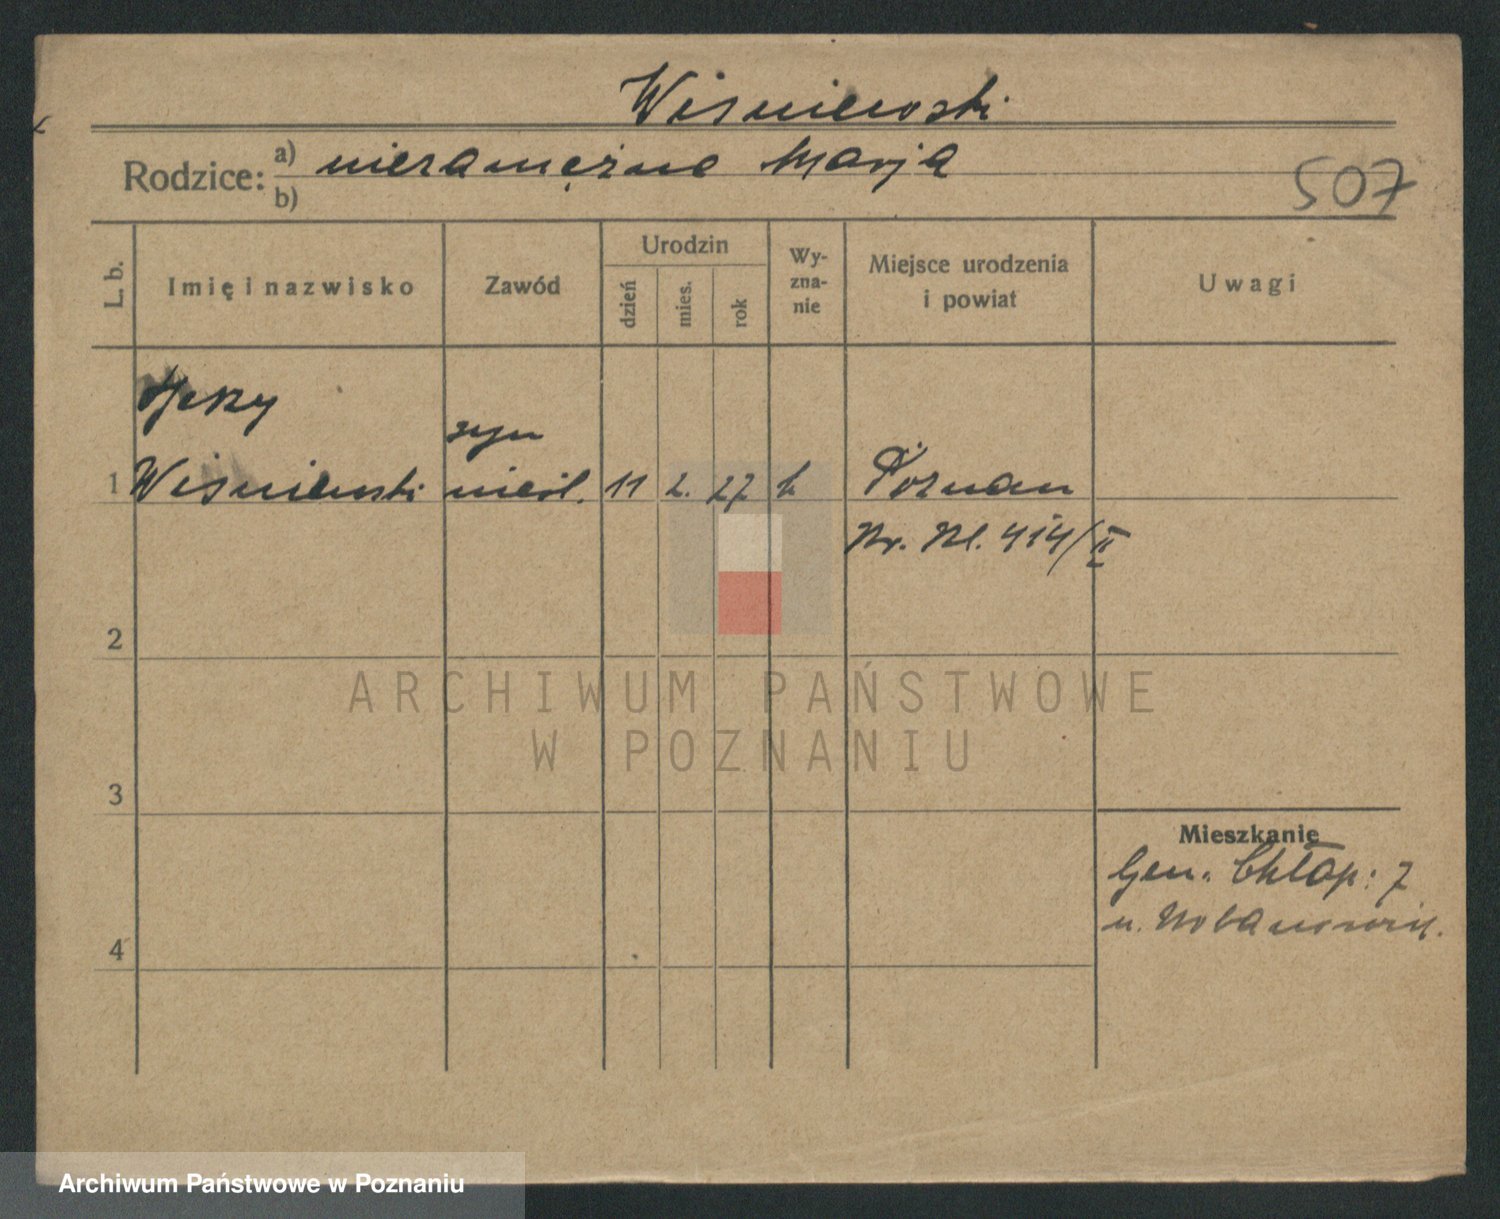 Wiśniewski
Rodzice: a) niezamężna Marja
b)
507
L. b.
Imię i nazwisko
Zawód
Urodzin
dzień
mies.
rok
Wy-
zna-
nie
Miejsce urodzenia
i powiat
Uwagi
Jerzy
syn
1 Wiśniewski nieśl. 11 2. 27 k Poznań
Nr. Kl. 414/II
2
ARCHIWUM PAŃSTWOWE
W POZNANIU
3
Mieszkanie
Gen. Chłap: 7
u.
4
Archiwum Państwowe w Poznaniu